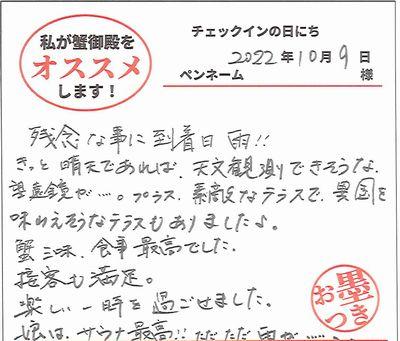 私が蟹御殿を
オススメ
します!
チェックインの日にち
2022年10月9日
ペンネーム 様
残念な事に到着日 雨!!
きっと晴天であれば、天文観測できそうな、
望遠鏡が…。プラス、素敵なテラスで、異国を
味わえそうなテラスもありました♪。
蟹三昧、食事最高でした。
接客も満足。
楽しい一時を過ごせました。
娘は、サウナ最高!! ただただ雨が……
お墨つき